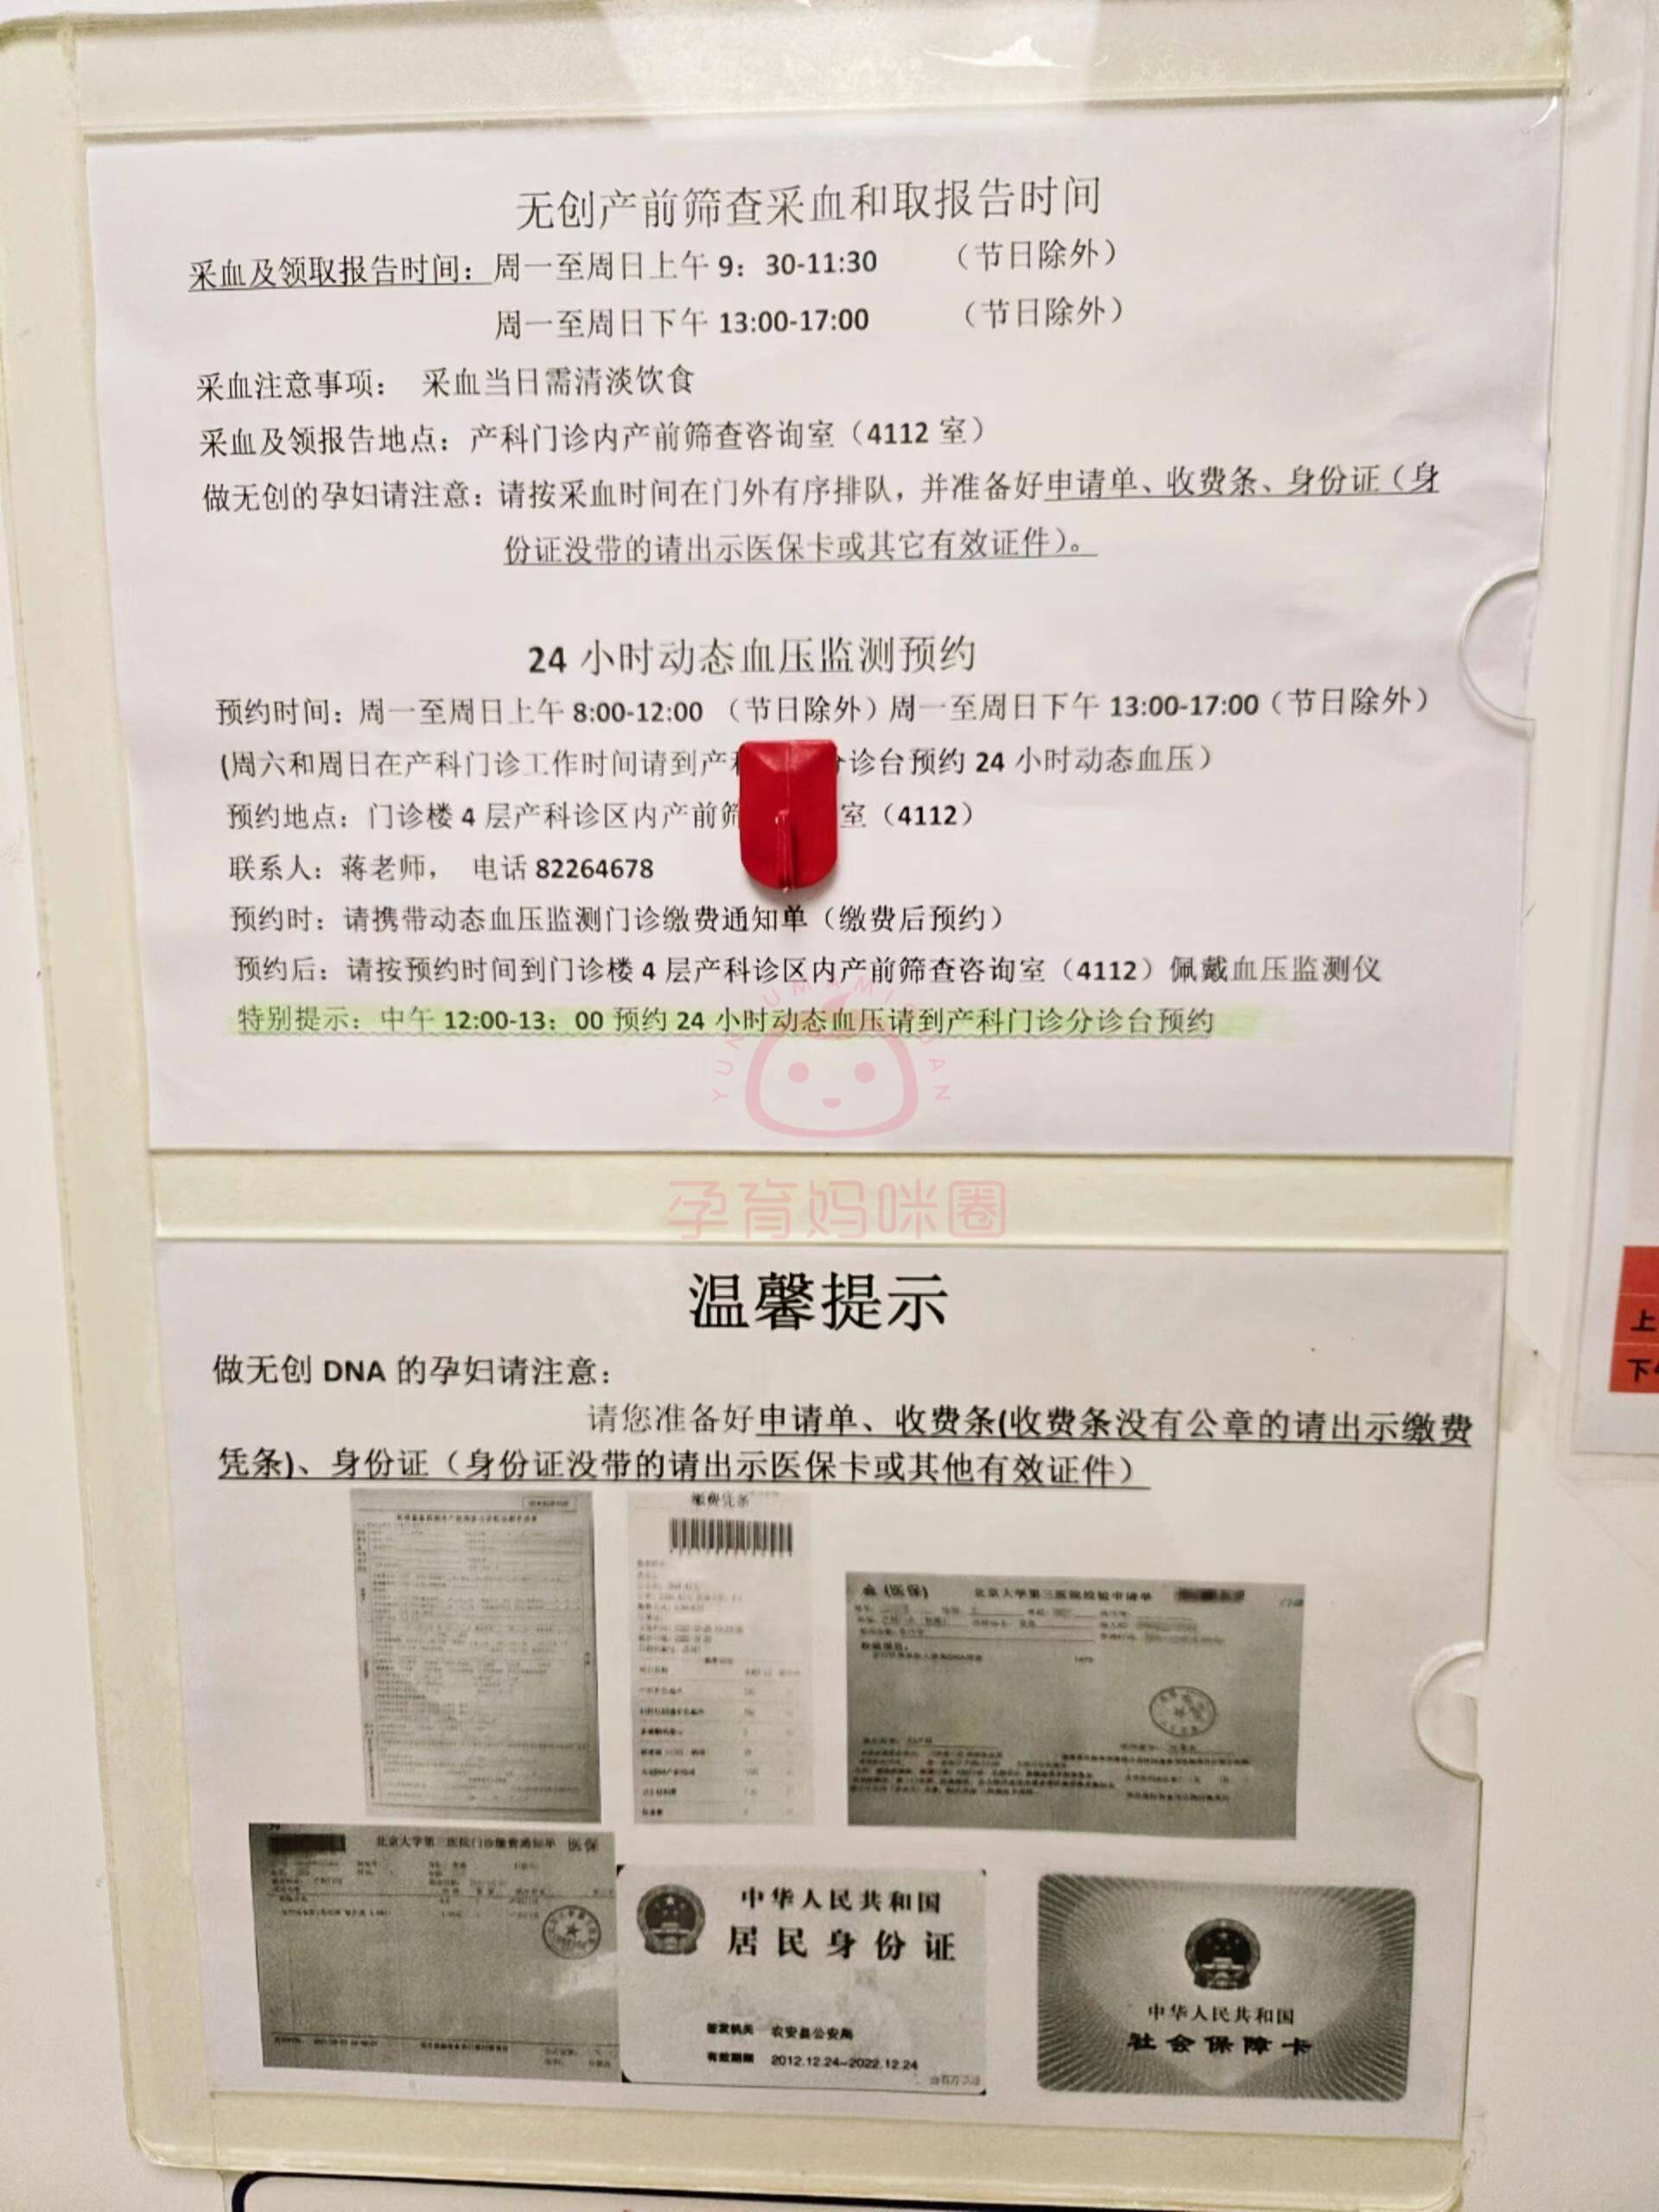 无创产前筛查采血和取报告时间
采血及领取报告时间：周一至周日上午 9：30-11:30 （节日除外）
周一至周日下午 13:00-17:00 （节日除外）
采血注意事项： 采血当日需清淡饮食
采血及领报告地点：产科门诊内产前筛查咨询室（4112 室）
做无创的孕妇请注意：请按采血时间在门外有序排队，并准备好申请单、收费条、身份证（身
份证没带的请出示医保卡或其它有效证件）。
24 小时动态血压监测预约
预约时间：周一至周日上午 8:00-12:00 （节日除外）周一至周日下午 13:00-17:00（节日除外）
(周六和周日在产科门诊工作时间请到产 诊台预约 24 小时动态血压）
预约地点：门诊楼 4 层产科诊区内产前筛 室（4112）
联系人：蒋老师， 电话 82264678
预约时：请携带动态血压监测门诊缴费通知单（缴费后预约）
预约后：请按预约时间到门诊楼 4 层产科诊区内产前筛查咨询室（4112）佩戴血压监测仪
特别提示：中午 12:00-13：00 预约 24 小时动态血压请到产科门诊分诊台预约
YUNYUMAMIQUAN
孕育妈咪圈
温馨提示
做无创 DNA 的孕妇请注意：
请您准备好申请单、收费条(收费条没有公章的请出示缴费
凭条)、身份证（身份证没带的请出示医保卡或其他有效证件）
缴费凭条
（医保） 北京大学第三医院检验申请单
北京大学第三医院门诊缴费通知单 医保
中华人民共和国
居民身份证
签发机关 农安县公安局
有效期限 2012.12.24-2022.12.24
中华人民共和国
社会保障卡
上
下